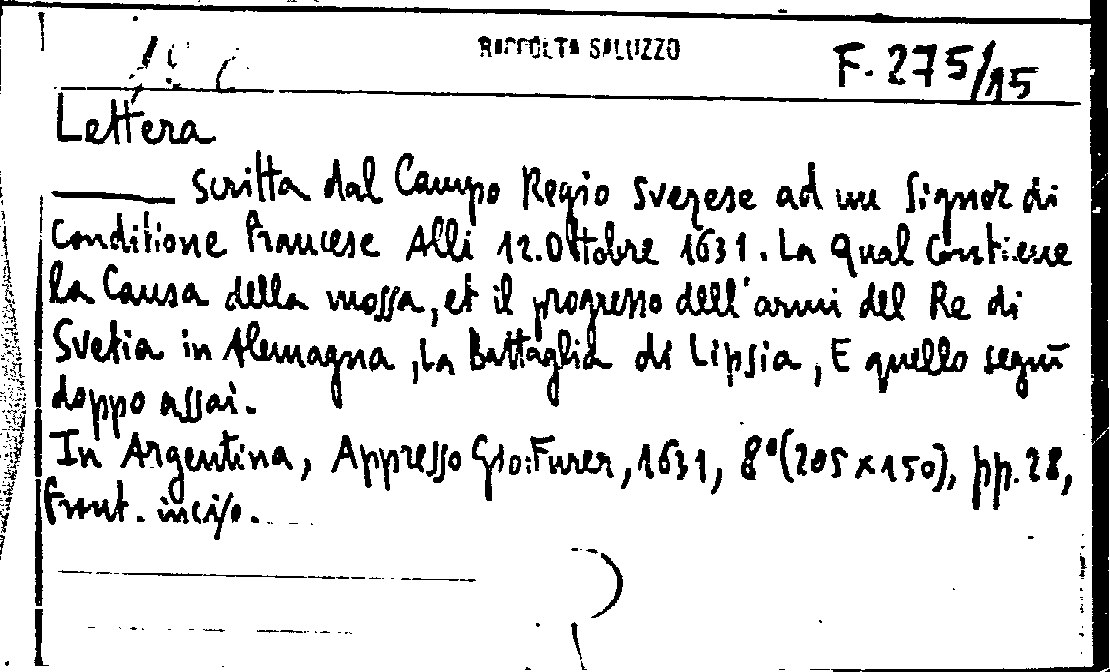 RACCOLTA SALUZZO
F. 275/15
Lettera
scritta dal Campo Regio Svezese ad un Signor di
Conditione Francese Alli 12. Ottobre 1631. La qual Contiene
la Causa della mossa, et il progresso dell'armi del Re di
Svetia in Alemagna, La Battaglia di Lipsia, E quello seguì
doppo assai.
In Argentina, Appresso Gio: Furer, 1631, 8º (205 x 150), pp. 28,
front. inciso.